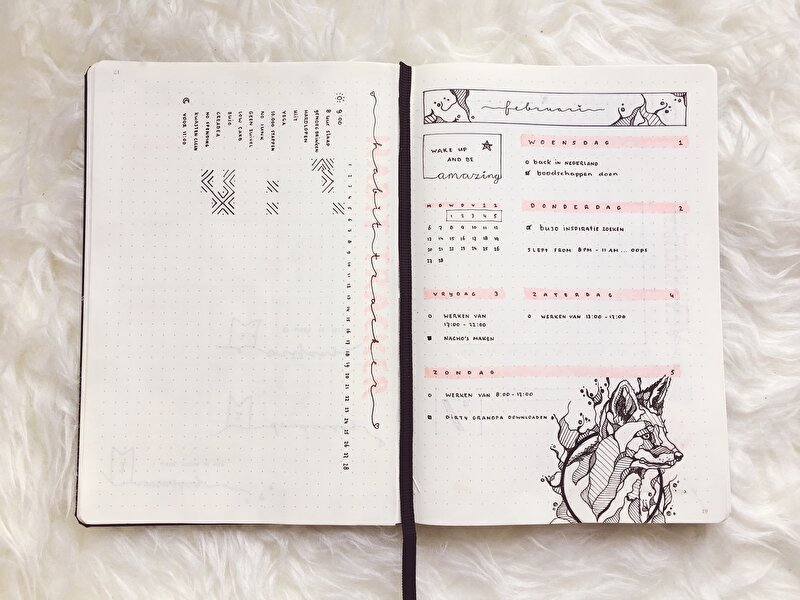 habit tracker
HABIT TRACKER
1 2 3 4 5 6 7 8 9 10 11 12 13 14 15 16 17 18 19 20 21 22 23 24 25 26 27 28
9:00
8 UUR SLAAP
GENOEG DRINKEN
HARDLOPEN
HIIT
VEGA
10.000 STAPPEN
NO JUNK
GEEN ZUIVEL
LOW CARB
BUJO
CREADEA
NO SPENDING
KWASTEN CLEAN
VOOR 11:00
februari
WAKE UP
AND BE
amazing
M D W D V Z Z
1 2 3 4 5
6 7 8 9 10 11 12
13 14 15 16 17 18 19
20 21 22 23 24 25 26
27 28
WOENSDAG 1
BACK IN NEDERLAND
BOODSCHAPPEN DOEN
DONDERDAG 2
BUJO INSPIRATIE ZOEKEN
SLEPT FROM 8PM - 11AM ... OOPS
VRIJDAG 3
WERKEN VAN
17:00 - 22:00
NACHO'S MAKEN
ZATERDAG 4
WERKEN VAN 13:00 - 17:00
ZONDAG 5
WERKEN VAN 8:00 - 17:00
DIRTY GRANDPA DOWNLOADEN